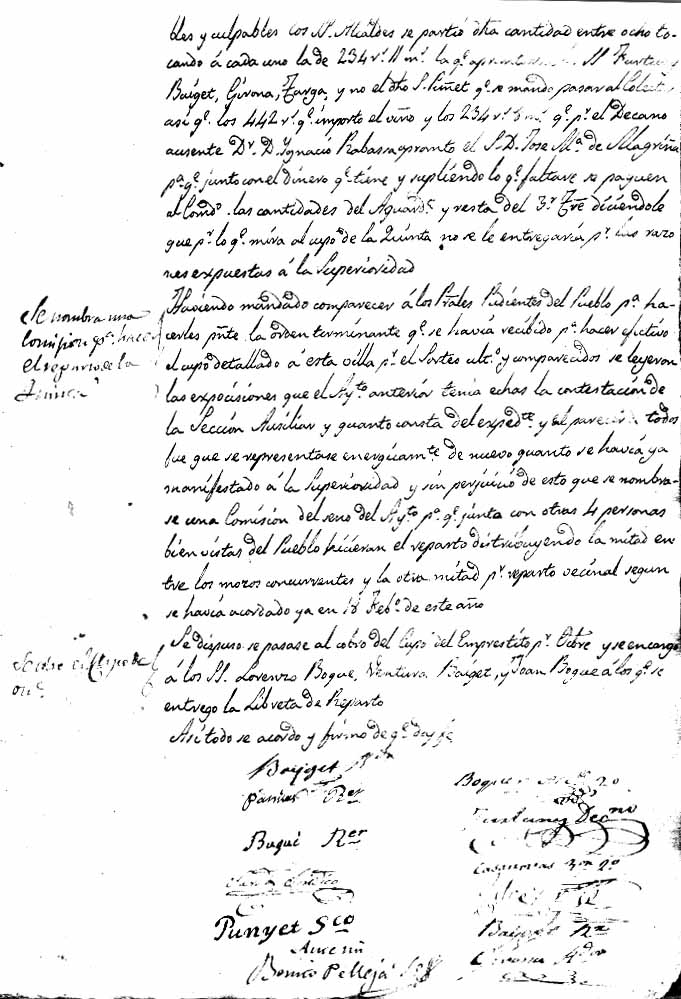 bles y culpables los Sres. Alcaldes se partió dha cantidad entre ocho to-
cando á cada uno la de 234 rs. 11 ms. la qe.
Baiget, Girona, Farga, y no el dho S. Piñet qe. se mandó pasar al
asi qe. los 442 rs. qe. importó el vino y los 234 rs. qe. pr. el Decano
ausente Dr. D. Ygnacio Rabassa aprontó el S. D. Jose Ma. de Magriña
pa. qe. junto con el dinero qe. tiene y supliendo lo qe. faltare se paguen
al las cantidades del Aguardte. y resta del 3r. Tre. diciéndole
que pr. lo qe. mira al cupo de la Quinta no se le entregaria pr. las razo
nes expuestas á la Superioridad
Se nombra una
Comision pa. hacer
el reparto de la
Quinta
Haviendo mandado comparecer á los Pudientes del Pueblo pa. ha-
cerles pnte. la orden terminante qe. se havia recibido pa. hacer efectivo
el cupo detallado á esta villa pr. el Sorteo ulto. y comparecidos se leyeron
las exposiciones que el Ayto. anterior tenia echas la contestación de
la Sección Auxiliar y quanto consta del expedte. y el parecer de todos
fue que se representase energicamte. de nuevo quanto se havia ya
manifestado á la Superioridad y sin perjuicio de esto que se nombra-
se una Comisión del seno del Ayto. pa. qe. junta con otras 4 personas
bien vistas del Pueblo hicieran el reparto distribuyendo la mitad en
tre los mozos concurrentes y la otra mitad pr. reparto vecinal segun
se havia acordado ya en 18 Febo. de este año
Sobre el Cupo de
Se dispuso se pasase al cobro del Cupo del Emprestito pr. Ocbre y se encargó
á los SS. Lorenzo Boque, Ventura Baiget, y Joan Boque á los qe. se
entregó la Libreta de Reparto
Asi todo se acordo y firmo de qe. doy fe
Baiget
Rer
Fustany Decno
Buqué Rer
Casanovas
Punyet Sco
Baiget
Girona
Benito Pellejá